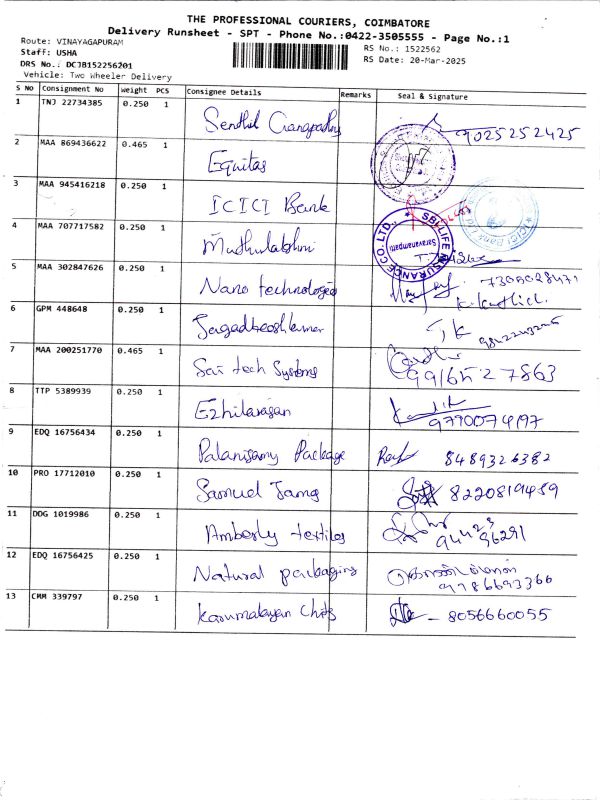 THE PROFESSIONAL COURIERS, COIMBATORE
Delivery Runsheet - SPT - Phone No.:0422-3505555 - Page No.:1
Route: VINAYAGAPURAM
Staff: USHA
DRS No.: DCJB152256201
Vehicle: Two Wheeler Delivery
RS No.: 1522562
RS Date: 20-Mar-2025
S No Consignment No Weight PCS Consignee Details Remarks Seal & Signature
1 TNJ 22734385 0.250 1 Senthil 9025252425
2 MAA 869436622 0.465 1 Equitas
3 MAA 945416218 0.250 1 ICICI Bank
4 MAA 707717582 0.250 1 Muthulakshmi
SBI LIFE INSURANCE CO. LTD.,
Saravanampatti
5 MAA 302847626 0.250 1 Nano technologies
6 GPM 448648 0.250 1 Jagadheeshkumar JK
7 MAA 200251770 0.465 1 Sai tech Systems 9916527863
8 TTP 5389939 0.250 1 Ezhilarasan
9 EDQ 16756434 0.250 1 Palanisamy Package 8489326382
10 PRO 17712010 0.250 1 Samuel 8220819459
11 DDG 1019986 0.250 1 Amberly textiles 94423 96291
12 EDQ 16756425 0.250 1 Natural packaging 9786693366
13 CMM 339797 0.250 1 Karumalayan Chits - 8056660055